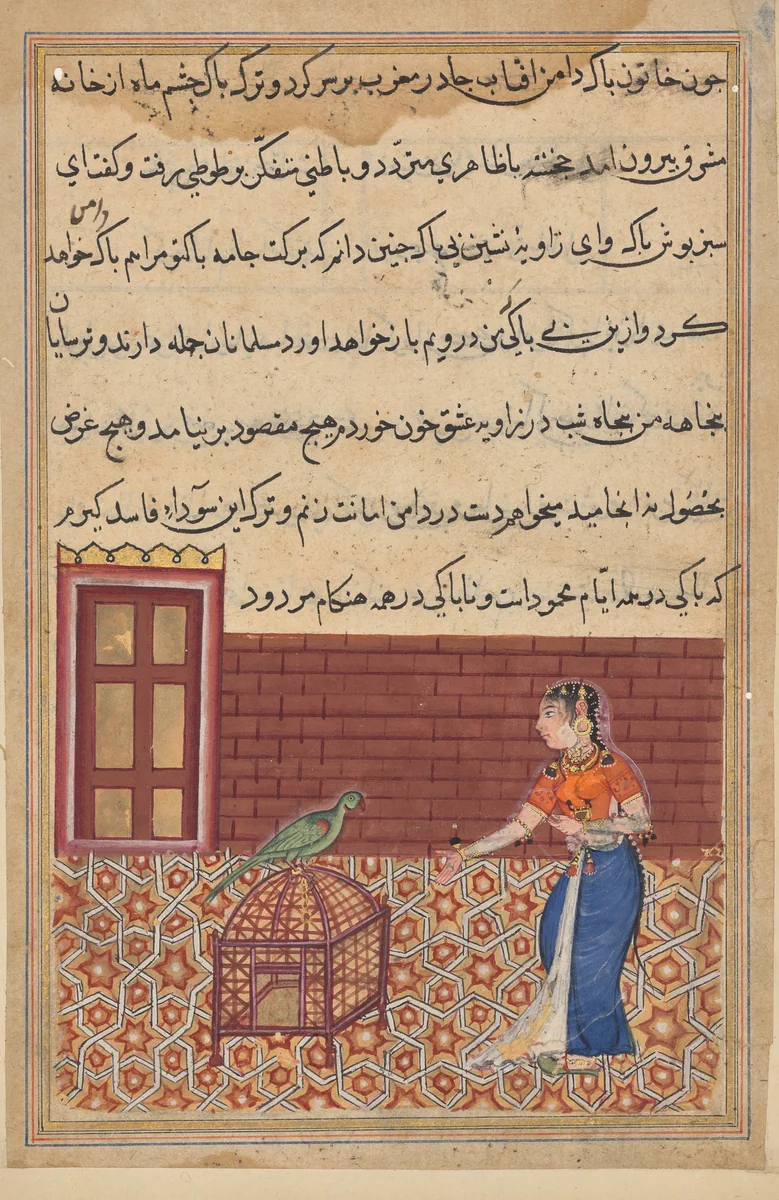 جون خاتون باك دامن افتاب جادر مغرب بر سر كرد و ترك باك جشم ماه از خانه
مشرق بيرون امد خجسته با ظاهري متردّد و باطني متفكّر بر طوطي رفت و كفت اي
دامن
سبز بوش باك و اي زاويۀ نشين بي باك جنين دانم كه بركت جامه باك تو مرا هم باك خواهد
كرد و ازين بي باكي من در ويم باز خواهد اورد مسلمانان جمله دارند و ترسايان
بنجاهه من بنجاه شب در زاويه عشق خون خوردم هيج مقصود بر نيامد و هيج غرض
بحصُول نه انجاميد ميخواهم دست در دامن امانت زنم و ترك اين سوداء فاسد كيرم
كه باكي در همه ايّام محمود است و ناباكي در همه هنكام مردود